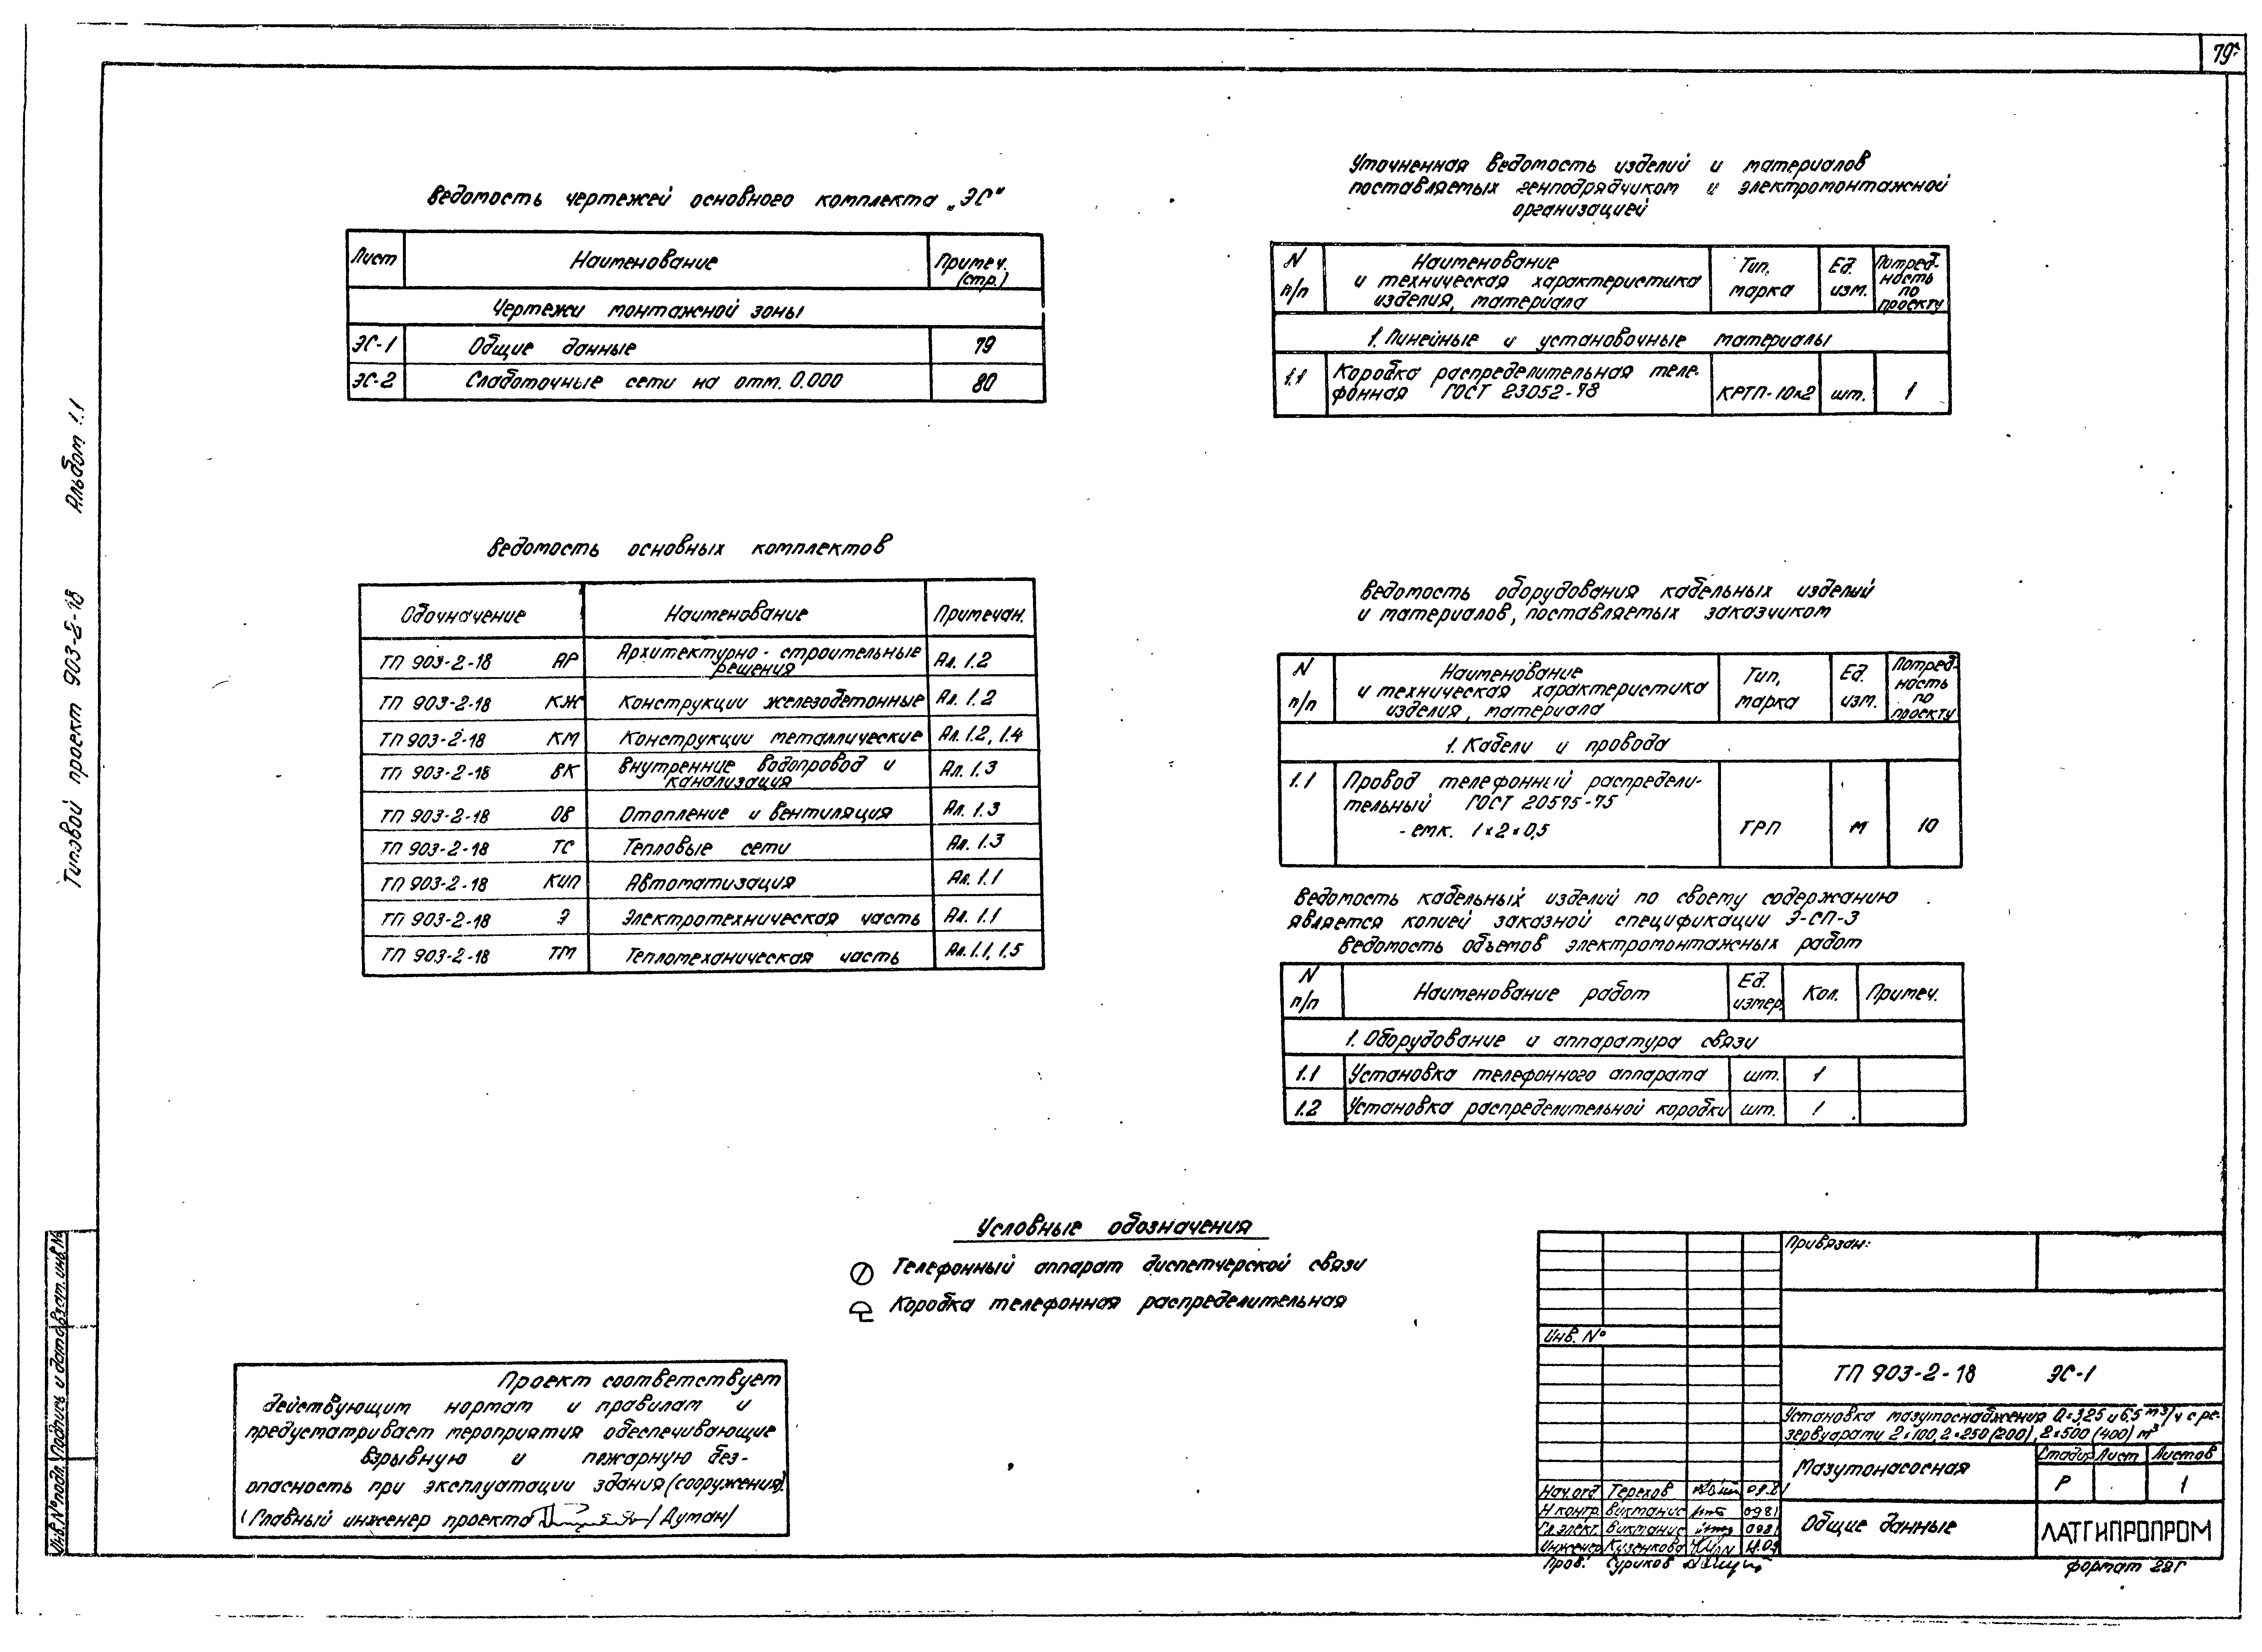 79
Типовой проект 903-2-18 Альбом 1.1
Ведомость чертежей основного комплекта „ЭС"
Лист Наименование Примеч. (стр.)
Чертежи монтажной зоны
ЭС-1 Общие данные 79
ЭС-2 Слаботочные сети на отм. 0.000 80
Ведомость основных комплектов
Обозначение Наименование Примечан.
ТП 903-2-18 АР Архитектурно-строительные решения Ал. 1.2
ТП 903-2-18 КЖ Конструкции железобетонные Ал. 1.2
ТП 903-2-18 КМ Конструкции металлические Ал. 1.2, 1.4
ТП 903-2-18 ВК Внутренние водопровод и канализация Ал. 1.3
ТП 903-2-18 ОВ Отопление и вентиляция Ал. 1.3
ТП 903-2-18 ТС Тепловые сети Ал. 1.3
ТП 903-2-18 КИП Автоматизация Ал. 1.1
ТП 903-2-18 Э Электротехническая часть Ал. 1.1
ТП 903-2-18 ТМ Тепломеханическая часть Ал. 1.1, 1.5
Уточненная ведомость изделий и материалов
поставляемых генподрядчиком и электромонтажной
организацией
N п/п Наименование и техническая характеристика изделия, материала Тип, марка Ед. изм. Потреб-ность по проекту
1. Линейные и установочные материалы
1.1 Коробка распределительная теле-
фонная ГОСТ 23052-78 КРТП-10х2 шт. 1
Ведомость оборудования кабельных изделий
и материалов, поставляемых заказчиком
N п/п Наименование и техническая характеристика изделия, материала Тип, марка Ед. изм. Потреб-ность по проекту
1. Кабели и провода
1.1 Провод телефонный распредели-
тельный ГОСТ 20575-75
- емк. 1×2×0,5 ТРП м 10
Ведомость кабельных изделий по своему содержанию
является копией заказной спецификации Э-СП-3
Ведомость объемов электромонтажных работ
N п/п Наименование работ Ед. измер. Кол. Примеч.
1. Оборудование и аппаратура связи
1.1 Установка телефонного аппарата шт. 1
1.2 Установка распределительной коробки шт. 1
Условные обозначения
Телефонный аппарат диспетчерской связи
Коробка телефонная распределительная
Проект соответствует
действующим нормам и правилам и
предусматривает мероприятия обеспечивающие
взрывную и пожарную без-
опасность при эксплуатации здания (сооружения).
Главный инженер проекта /Думан/
Инв. № подл. Подпись и дата Взам. инв. №
Привязан:
Инв. №
ТП 903-2-18 ЭС-1
Установка мазутоснабжения Q=3,25 и 6,5 м³/ч с ре-
зервуарами 2×100, 2×250 (200), 2×500 (400) м³
Мазутонасосная
Стадия Лист Листов
Р 1
Нач. отд. Терехов
Н. контр. Виктанис 0981
Гл. элект. Виктанис 0981
Инженер Кузенкова
Пров. Суриков
Общие данные
ЛАТГИПРОПРОМ
формат 22Г